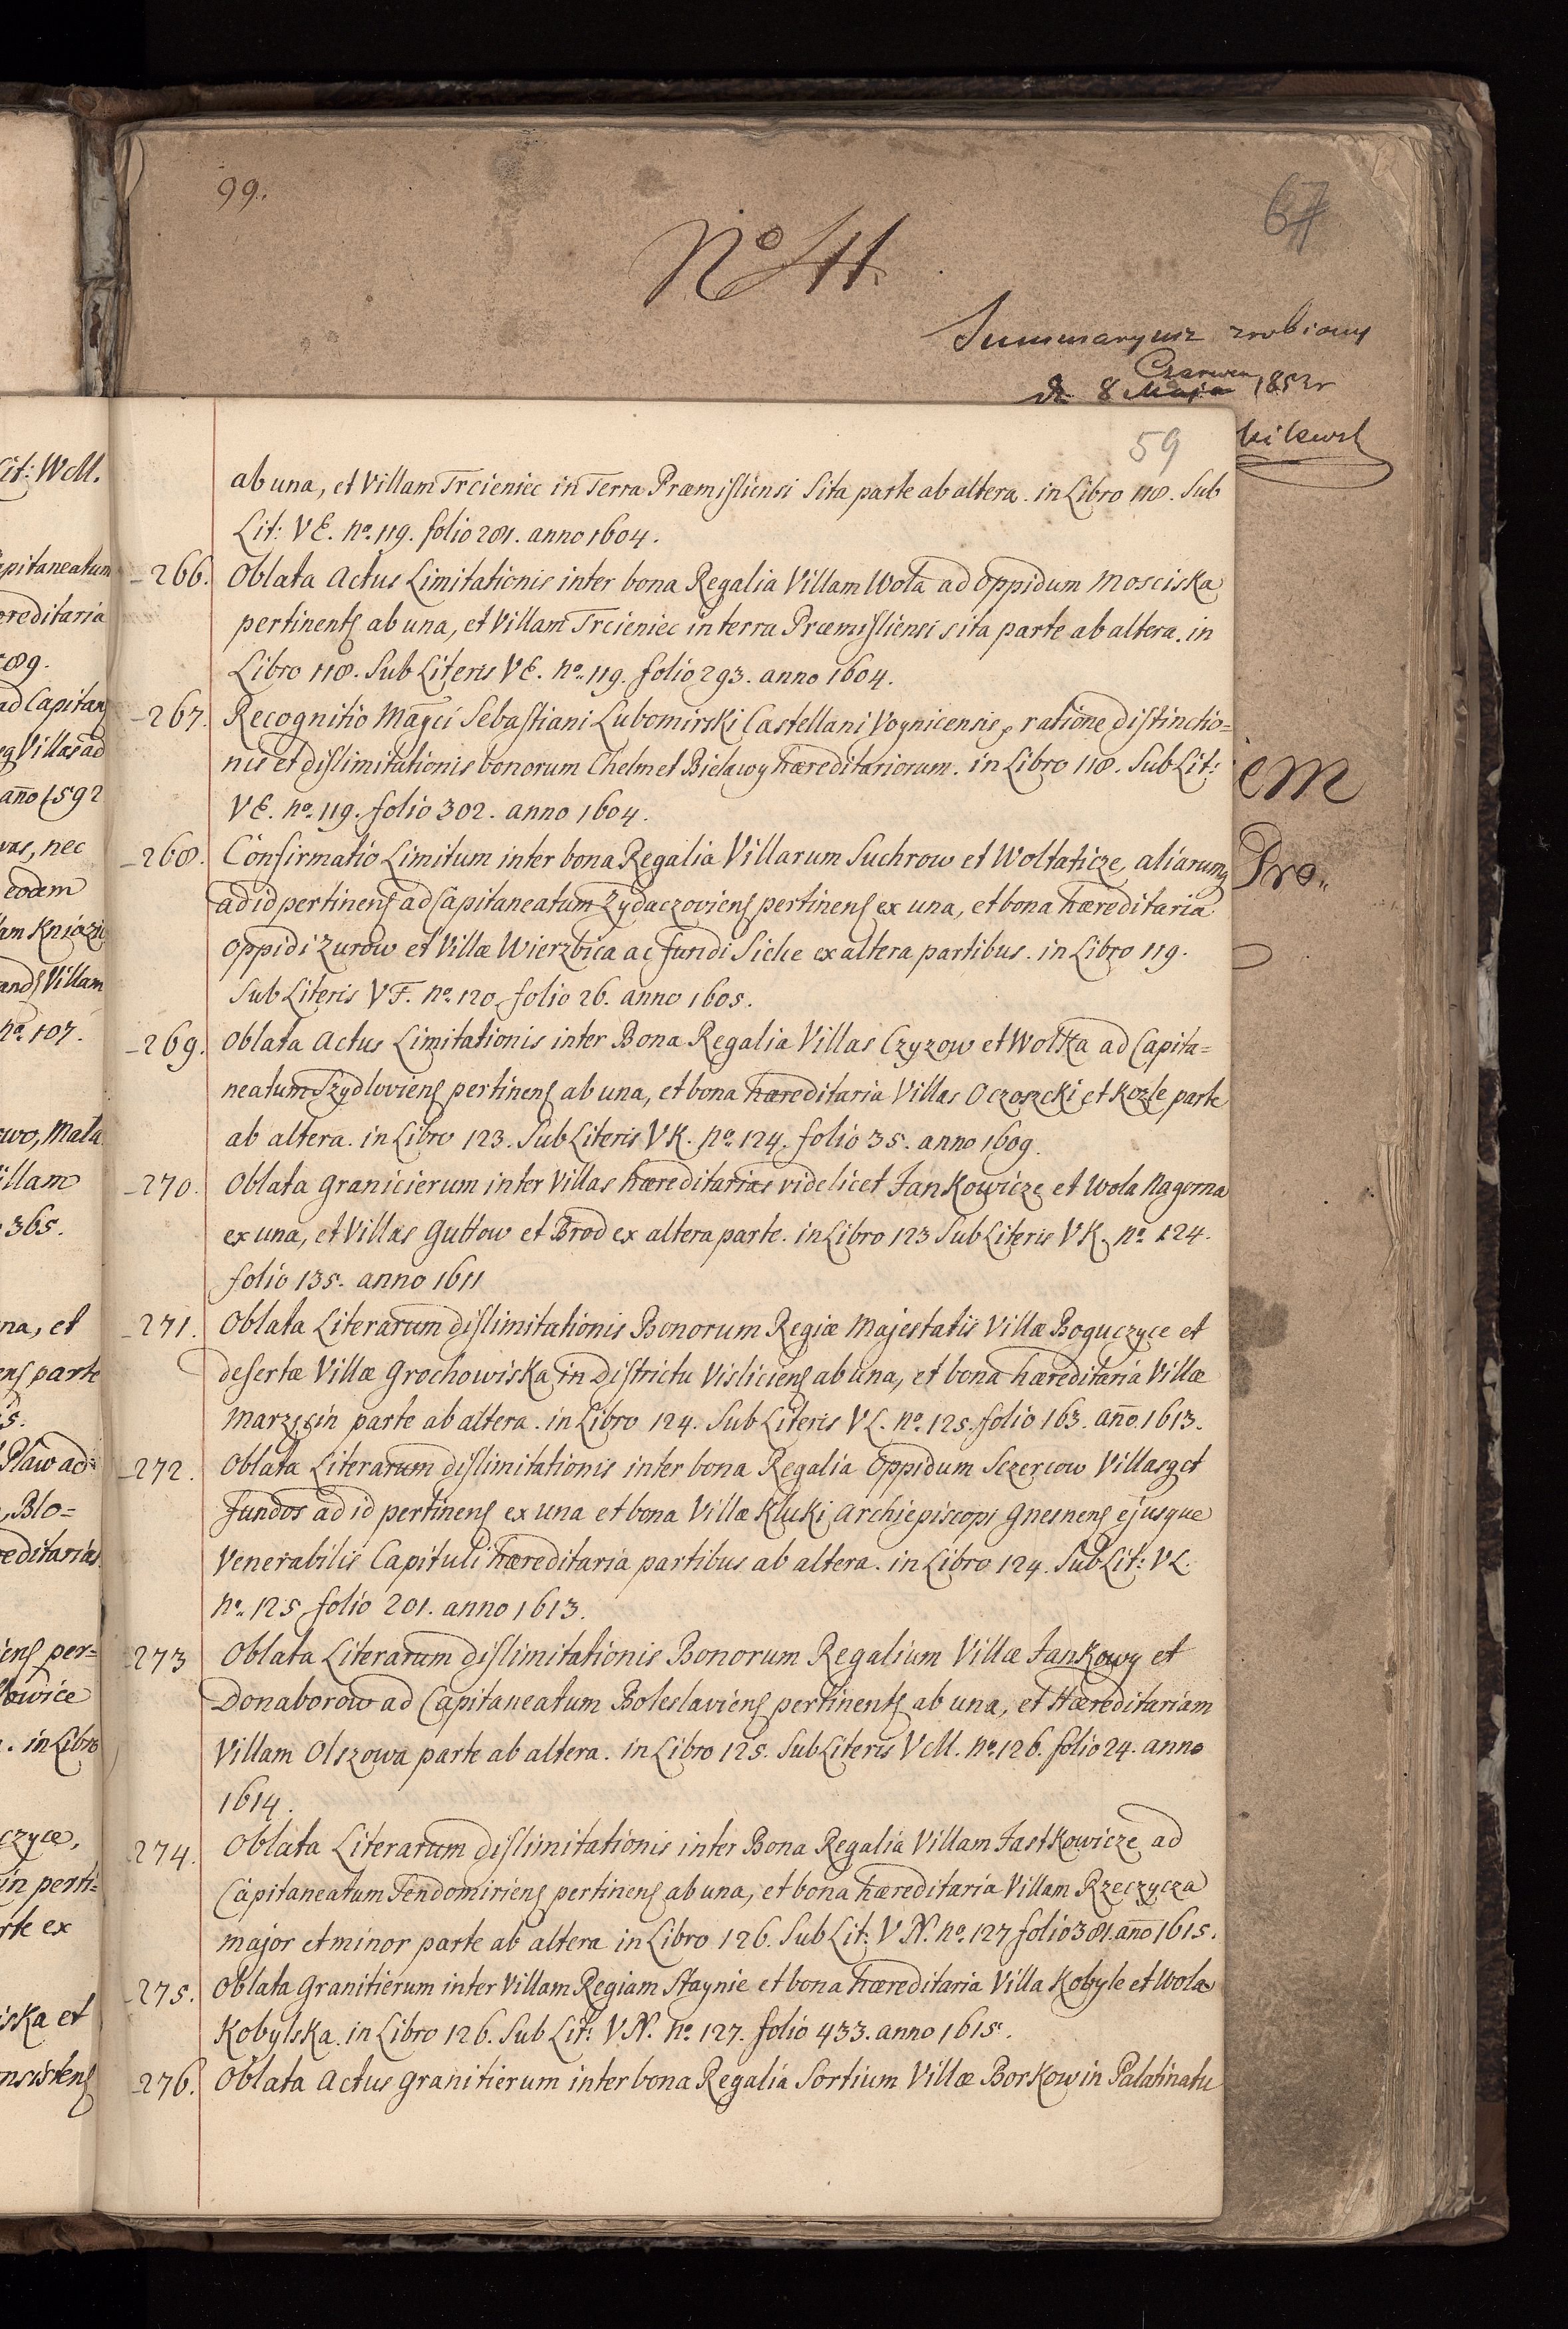 99.
67
No 44.
Summaryusz zrobiony
Czerwca
d. 8 Maja 1852r
kilewsk
59
ab una, et Villam Trcieniec in Terra Præmisliensi Sita parte ab altera. in Libro 118. Sub
Lit: VE. no. 119. folio 281. anno 1604.
266. Oblata Actus Limitationis inter bona Regalia Villam Wola ad oppidum Mosciska
pertinents ab una, et Villam Trcieniec in terra Præmisliensi sita parte ab altera. in
Libro 118. Sub Literis VE. no. 119. folio 293. anno 1604.
267. Recognitio Mayci Sebastiani Lubomirski Castellani Voynicensis, ratione distinctio=
nis et dislimitationis bonorum Chelm et Bielawy hæreditariorum. in Libro 118. Sub Lit:
VE. no. 119. folio 302. anno 1604.
268. Confirmatio Limitum inter bona Regalia Villarum Suchrow et Woltaticze, aliarumq
ad id pertinens ad Capitaneatum Zydaczoviens pertinens ex una, et bona hæreditaria
oppidi Zurow et Villæ Wierzbica ac fundi Siche ex altera partibus. in Libro 119.
Sub Literis VF. no. 120. folio 26. anno 1605.
269. Oblata Actus Limitationis inter Bona Regalia Villas Czyzow et Wolka ad Capita=
neatum Szydloviens pertinens ab una, et bona hæreditaria Villas et Kozle parte
ab altera. in Libro 123. Sub Literis VK. no. 124. folio 35. anno 1609.
270. Oblata Granicierum inter Villas hæreditarias videlicet Jankowicze et Wola Nagorna
ex una, et Villas Guttow et Brod ex altera parte. in Libro 123 Sub Literis VK. no. 124.
folio 135. anno 1611
271. Oblata Literarum dislimitationis Bonorum Regiæ Majestatis Villæ Boguczyce et
desertæ Villæ Grochowiska in Districtu Visliciens ab una, et bona hæreditaria Villæ
Marzęsin parte ab altera. in Libro 124. Sub Literis VL. no. 125. folio 163. año. 1613.
272. Oblata Literarum dislimitationis inter bona Regalia Oppidum Sczercow Villasq et
fundos ad id pertinens ex una et bona Villæ Kluki Archiepiscopi Gnesnens ejusque
Venerabilis Capituli hæreditaria partibus ab altera. in Libro 124. Sub Lit: VL.
no. 125. folio 201. anno 1613.
273 Oblata Literarum dislimitationis Bonorum Regalium Villæ Jankowy et
Donaborow ad Capitaneatum Boleslaviens pertinents ab una, et Hæreditariam
Villam Olszowa parte ab altera. in Libro 125. Sub Literis VM. no. 126. folio 24. anno
1614.
274. Oblata Literarum dislimitationis inter Bona Regalia Villam Jastkowicze ad
Capitaneatum Sendomiriens pertinens ab una, et bona hæreditaria Villam Rzeczycza
major et minor parte ab altera in Libro 126. Sub Lit: VN. no. 127 folio 381. año 1615.
275. Oblata Granitierum inter Villam Regiam Staynie et bona hæreditaria Villa Kobyle et Wola
Kobylska. in Libro 126. Sub Lit: VN. no. 127. folio 433. anno 1615.
276. Oblata Actus Granitierum inter bona Regalia Sortium Villæ Borkow in Palatinatu
em
Pro.
Lit: WM.
pitaneatum
ereditaria
ad Capitan
Villas ad
año 1592
vas, nec
eodem
am Kniazie
ands Villam
no. 107.
owo, Mala
illam
365.
na, et
ens parte
Plaw ad=
Blo=
editarias
iens per=
lowice
. in Libro
czyce,
in perti=
rte ex
iska et
nsistens